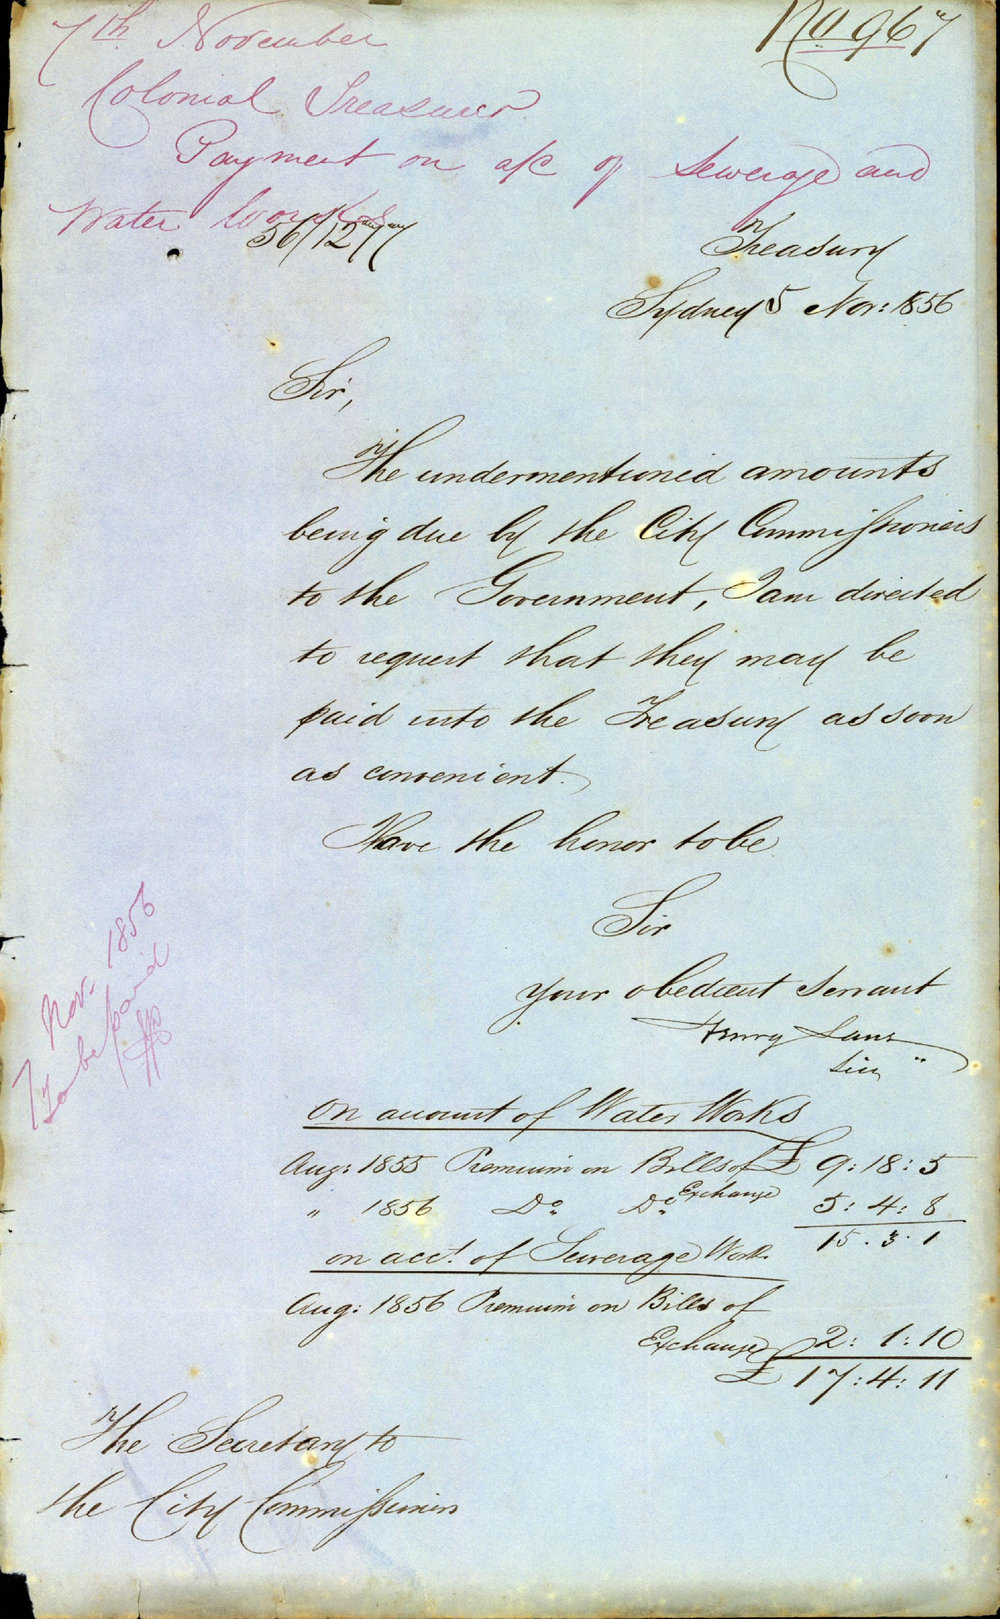 No 967
7th November
Colonial Treasurer
Payment on a/c of Sewerage and
Water Works
56/1277
Treasury
Sydney 5 Nov: 1856
Sir,
The undermentioned amounts
being due by the City Commissioners
to the Government, I am directed
to request that they may be
paid into the Treasury as soon
as convenient.
Have the honor to be
Sir
Your obedient Servant
Henry Lane
7 Nov. 1856
To be paid
On account of Water Works
Aug: 1855 Premium on Bills of £ 9:18:5
Exchange
" 1856 Do Do 5:4:8
15.3.1
on acct. of Sewerage Works
Aug: 1856 Premium on Bills of
Exchange 2:1:10
£ 17:4:11
The Secretary to
the City Commissioners